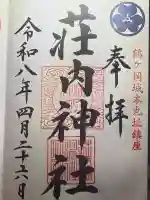 奉拝
鶴ヶ岡城本丸址鎮座
荘内神社
令和八年四月二十六日